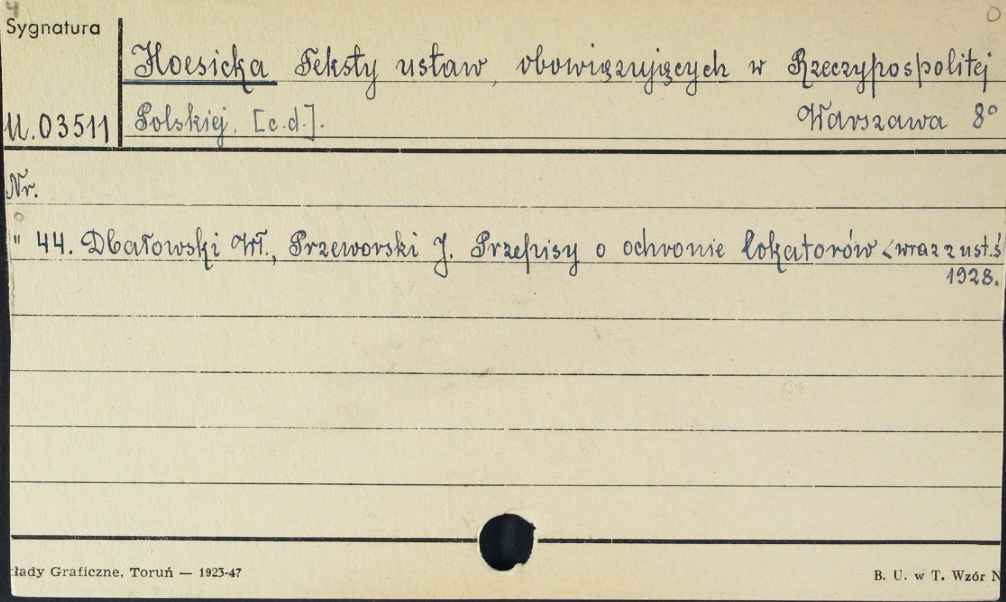 4
Sygnatura
Hoesicka Teksty ustaw, obowiązujących w Rzeczypospolitej
U.03511 Polskiej. [c.d.]. Warszawa 8°
Nr.
" 44. Dbałowski Wł., Przeworski J. Przepisy o ochronie lokatorów <wraz z ust.ś
1928.
kłady Graficzne, Toruń — 1923-47 B. U. w T. Wzór N